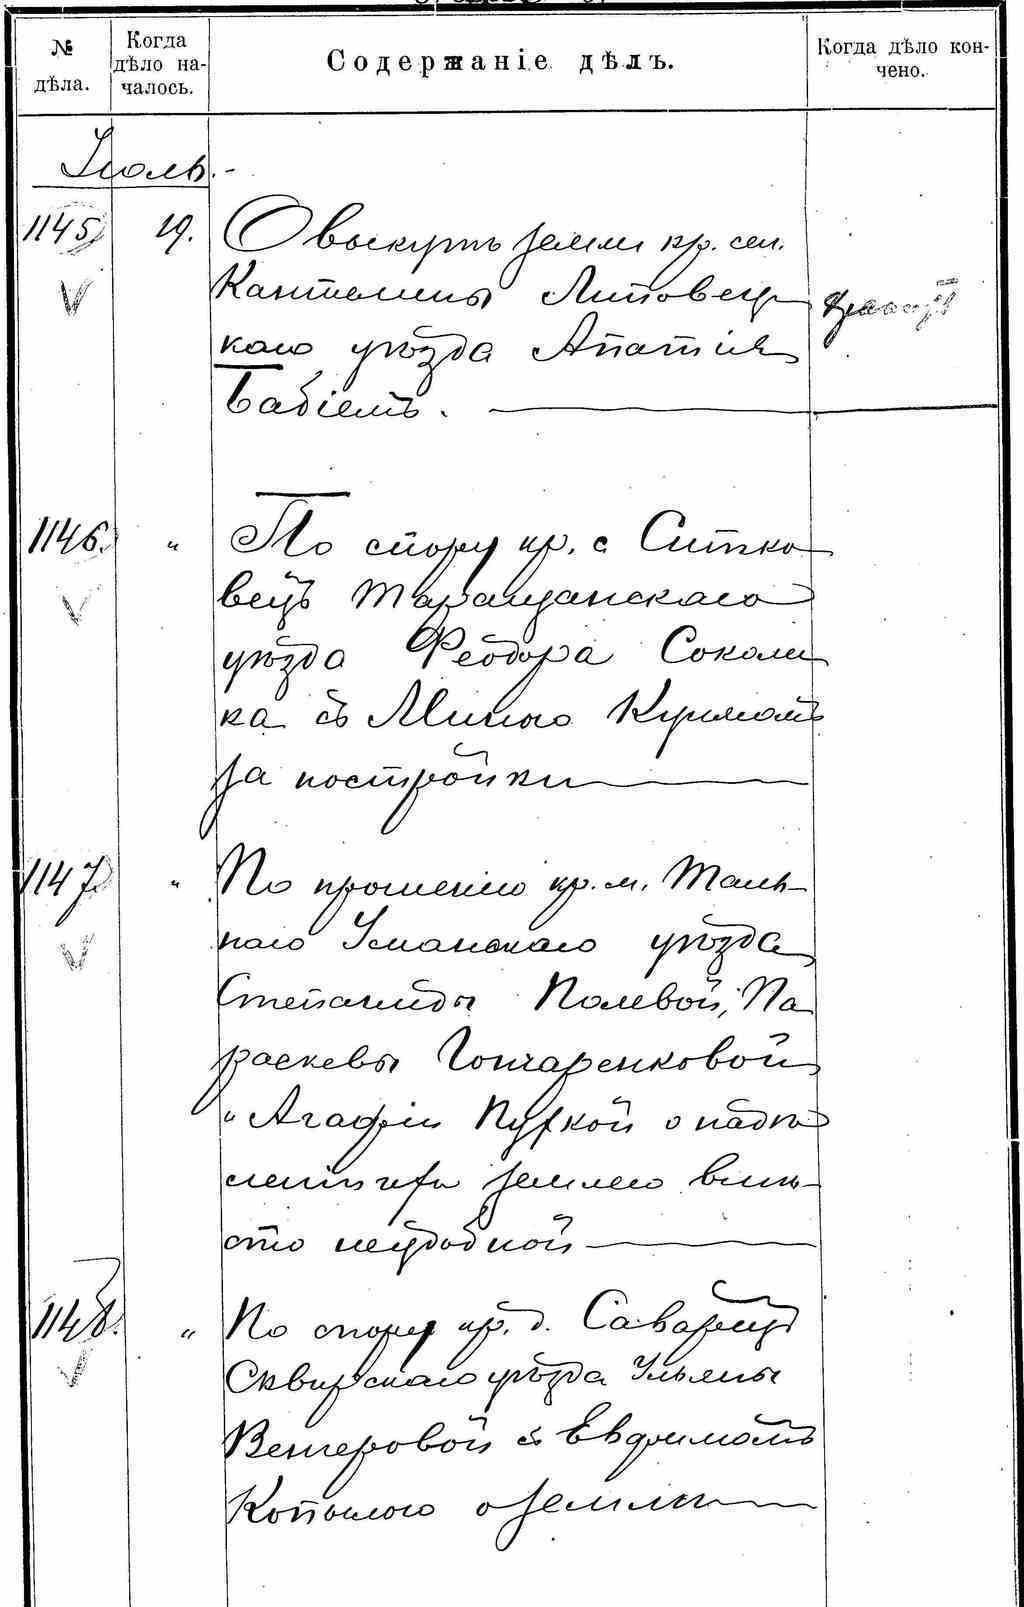 № дѣла.
Когда дѣло на-чалось.
Содержаніе дѣлъ.
Когда дѣло кон-чено.
Іюль.
1145 19. О выкупѣ земли кр. сел.
Кантелины Липовец
каго уѣзда Ипатіем
Бабіемъ.
1146. " По спору кр. с. Ситко
вецъ Таращанскаго
уѣзда Феодора Соколи
ка съ
за постройки
1147. " По прошенію кр. м. Таль-
наго Уманскаго уѣзда
Степаниды Полевой, Па
раскевы Гончаренковой
и Агафіи о надѣ
леніи ихъ землею вмѣ-
сто неудобной
1148. " По спору кр. д. Саварцъ
Сквирскаго уѣзда Ульяны
Вечеровой съ Евфимомъ
о землѣ